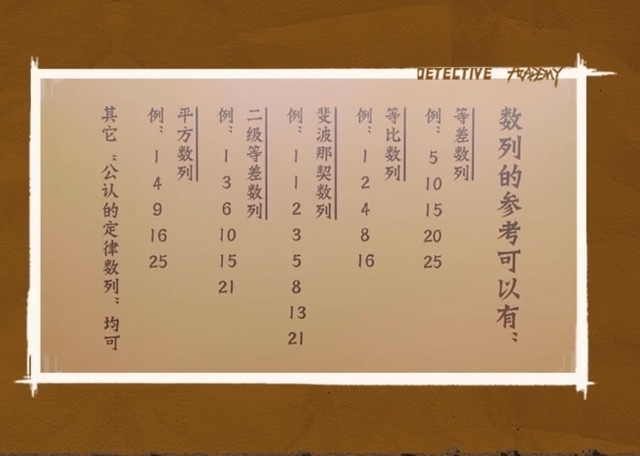 DETECTIVE ACADEMY
数列的参考可以有：
等差数列
例：5 10 15 20 25
等比数列
例：1 2 4 8 16
斐波那契数列
例：1 1 2 3 5 8 13 21
二级等差数列
例：1 3 6 10 15 21
平方数列
例：1 4 9 16 25
其它“公认的定律数列”均可